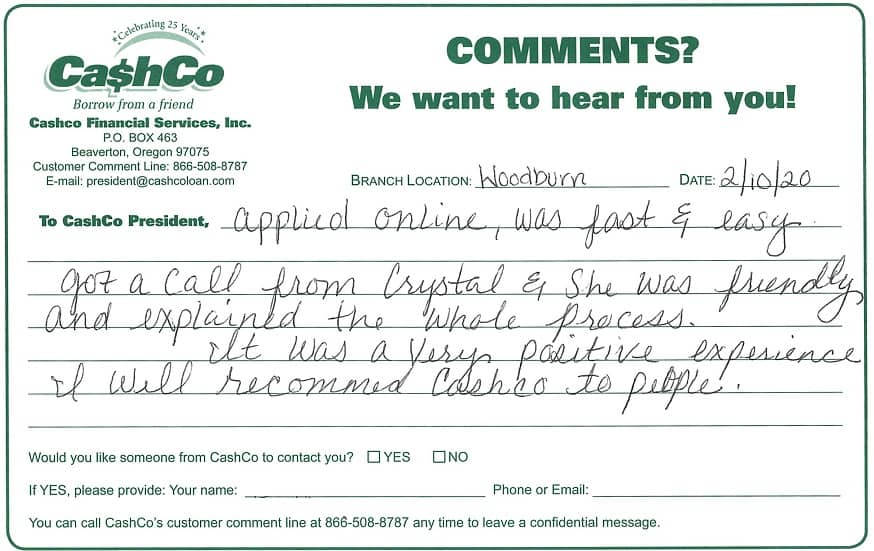 Celebrating 25 Years
Ca$hCo
Borrow from a friend
Cashco Financial Services, Inc.
P.O. BOX 463
Beaverton, Oregon 97075
Customer Comment Line: 866-508-8787
E-mail: president@cashcoloan.com
COMMENTS?
We want to hear from you!
BRANCH LOCATION: Woodburn DATE: 2/10/20
To CashCo President, applied online, was fast & easy
got a call from Crystal & She was friendly
and explained the whole process.
It was a very positive experience
I will recommed Cashco to people.
Would you like someone from CashCo to contact you? YES NO
If YES, please provide: Your name: Phone or Email:
You can call CashCo's customer comment line at 866-508-8787 any time to leave a confidential message.